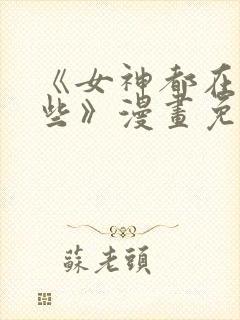 《女神都在
些》漫畫免
蘇老頭